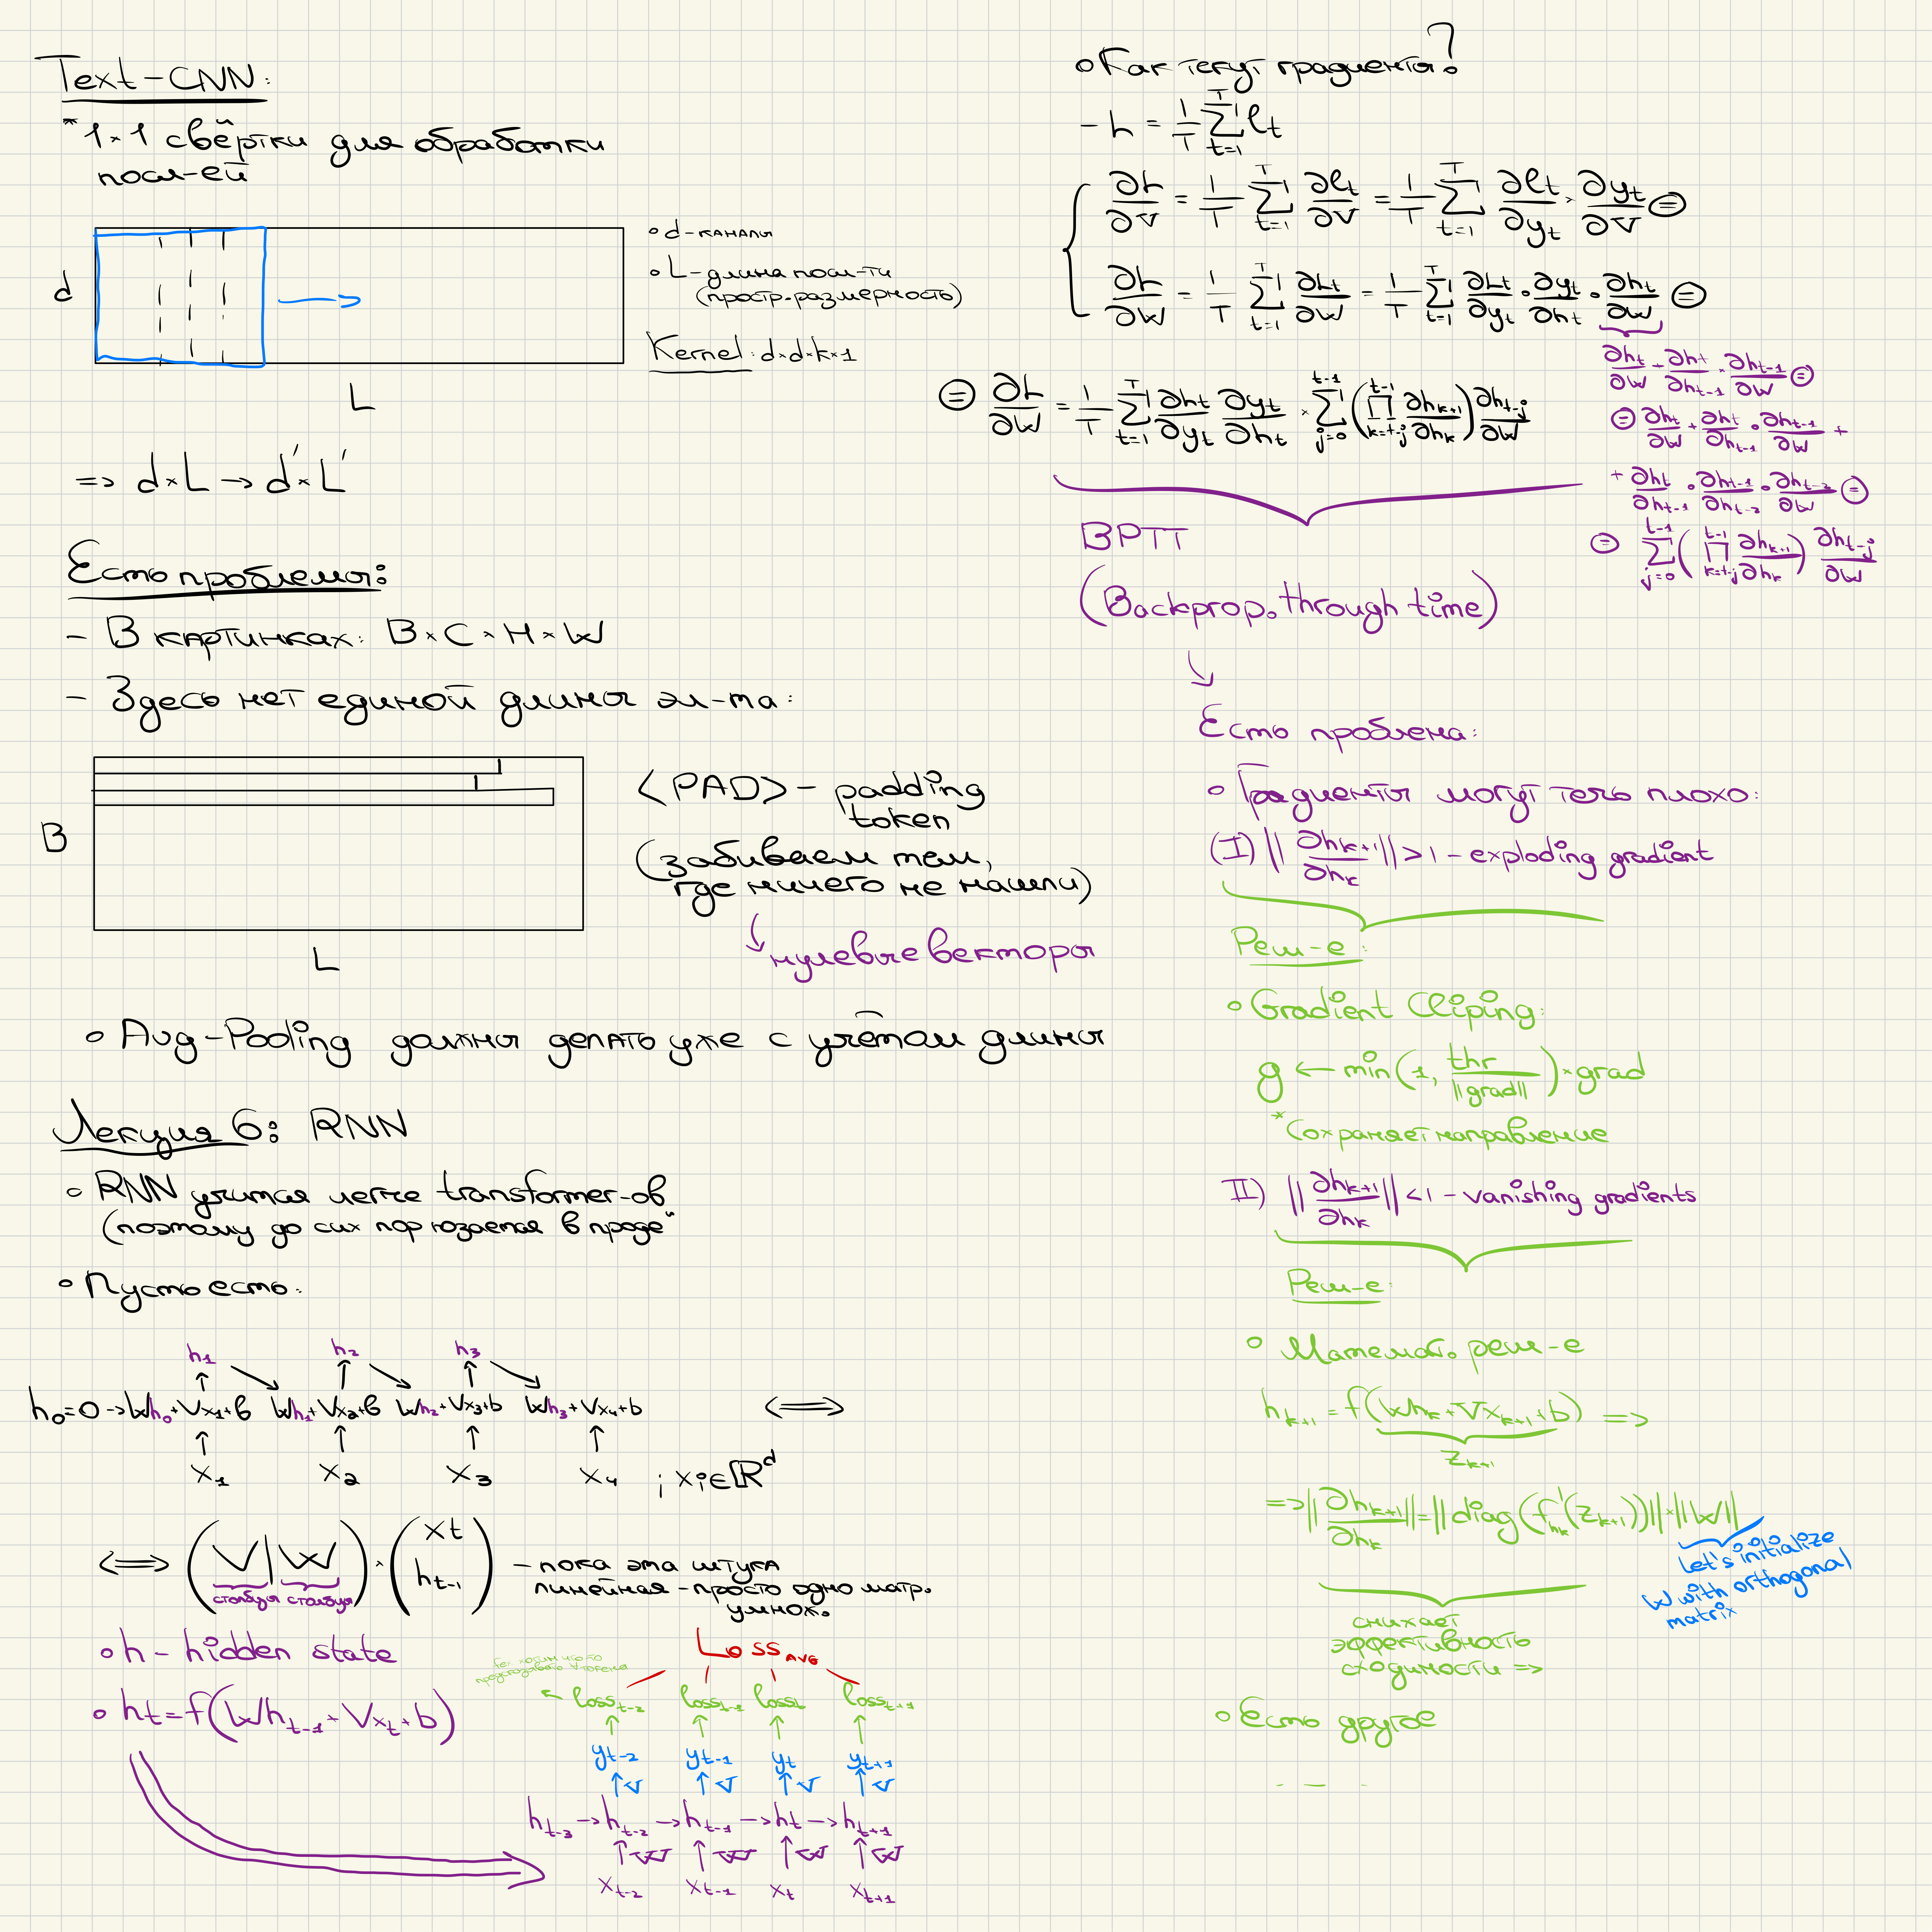 Text-CNN:
*1×1 свёртки для обработки
посл-ей
d
L
∘ d-каналы
∘ L-длина посл-ти
(простр. размерность)
Kernel: d×d×k×1
=> d×L → d'×L'
Есть проблемы:
- В картинках: B×C×H×W
- Здесь нет единой длины эл-та:
B
L
<PAD> - padding
token
(забиваем там,
где ничего не нашли)
нулевые векторы
∘ Avg-Pooling должны делать уже с учётом длины
Лекция 6: RNN
∘ RNN учится легче transformer-ов
(поэтому до сих пор юзается в проде"
∘ Пусть есть:
h₁ h₂ h₃
h₀=0 → Wh₀+Vx₁+b Wh₁+Vx₂+b Wh₂+Vx₃+b Wh₃+Vx₄+b <=>
x₁ x₂ x₃ x₄ ; xᵢ∈ℝᵈ
<=> (V|W) · (xt h_{t-1}) - пока эта штука
линейная - просто одно матр.
умнож.
столбцы столбцы
∘ h - hidden state
∘ ht = f(Wh_{t-1} + Vx_t + b)
Loss_AVG
← loss_{t-2} loss_{t-1} loss_t loss_{t+1}
y_{t-2} y_{t-1} y_t y_{t+1}
↑V ↑V ↑V ↑V
h_{t-3} → h_{t-2} → h_{t-1} → ht → h_{t+1}
↑W ↑W ↑W ↑W
x_{t-2} x_{t-1} x_t x_{t+1}
∘ Как текут градиенты?
- L = 1/T Σ_{t=1}^{T} ℓt
∂L/∂V = 1/T Σ_{t=1}^{T} ∂ℓt/∂V = 1/T Σ_{t=1}^{T} ∂ℓt/∂yt · ∂yt/∂V ⊜
∂L/∂W = 1/T Σ_{t=1}^{T} ∂Lt/∂W = 1/T Σ_{t=1}^{T} ∂Lt/∂yt · ∂yt/∂ht · ∂ht/∂W ⊜
∂ht/∂W + ∂ht/∂h_{t-1} · ∂h_{t-1}/∂W ⊜
⊜ ∂ht/∂W + ∂ht/∂h_{t-1} · ∂h_{t-1}/∂W +
+ ∂ht/∂h_{t-1} · ∂h_{t-1}/∂h_{t-2} · ∂h_{t-2}/∂W ⊜
⊜ Σ_{j=0}^{t-1} (Π_{k=t-j}^{t-1} ∂h_{k+1}/∂h_k) ∂h_{t-j}/∂W
⊜ ∂L/∂W = 1/T Σ_{t=1}^{T} ∂ht/∂yt ∂yt/∂ht × Σ_{j=0}^{t-1} (Π_{k=t-j}^{t-1} ∂h_{k+1}/∂h_k) ∂h_{t-j}/∂W
BPTT
(Backprop. through time)
Есть проблема:
∘ Градиенты могут течь плохо:
(I) ||∂h_{k+1}/∂h_k|| > 1 - exploding gradient
Реш-е:
∘ Gradient Cliping:
g ← min(1, thr/||grad||) · grad
*Сохраняет направление
II) ||∂h_{k+1}/∂h_k|| < 1 - vanishing gradients
Реш-е:
∘ Математ. реш-е
h_{k+1} = f(Wh_k + Vx_{k+1} + b) =>
z_{k+1}
=> ||∂h_{k+1}/∂h_k|| = ||diag(f'_{h_k}(z_{k+1}))|| · ||W||
Let's initialize
W with orthogonal
matrix
снижает
эффективность
сходимости =>
∘ Есть другое